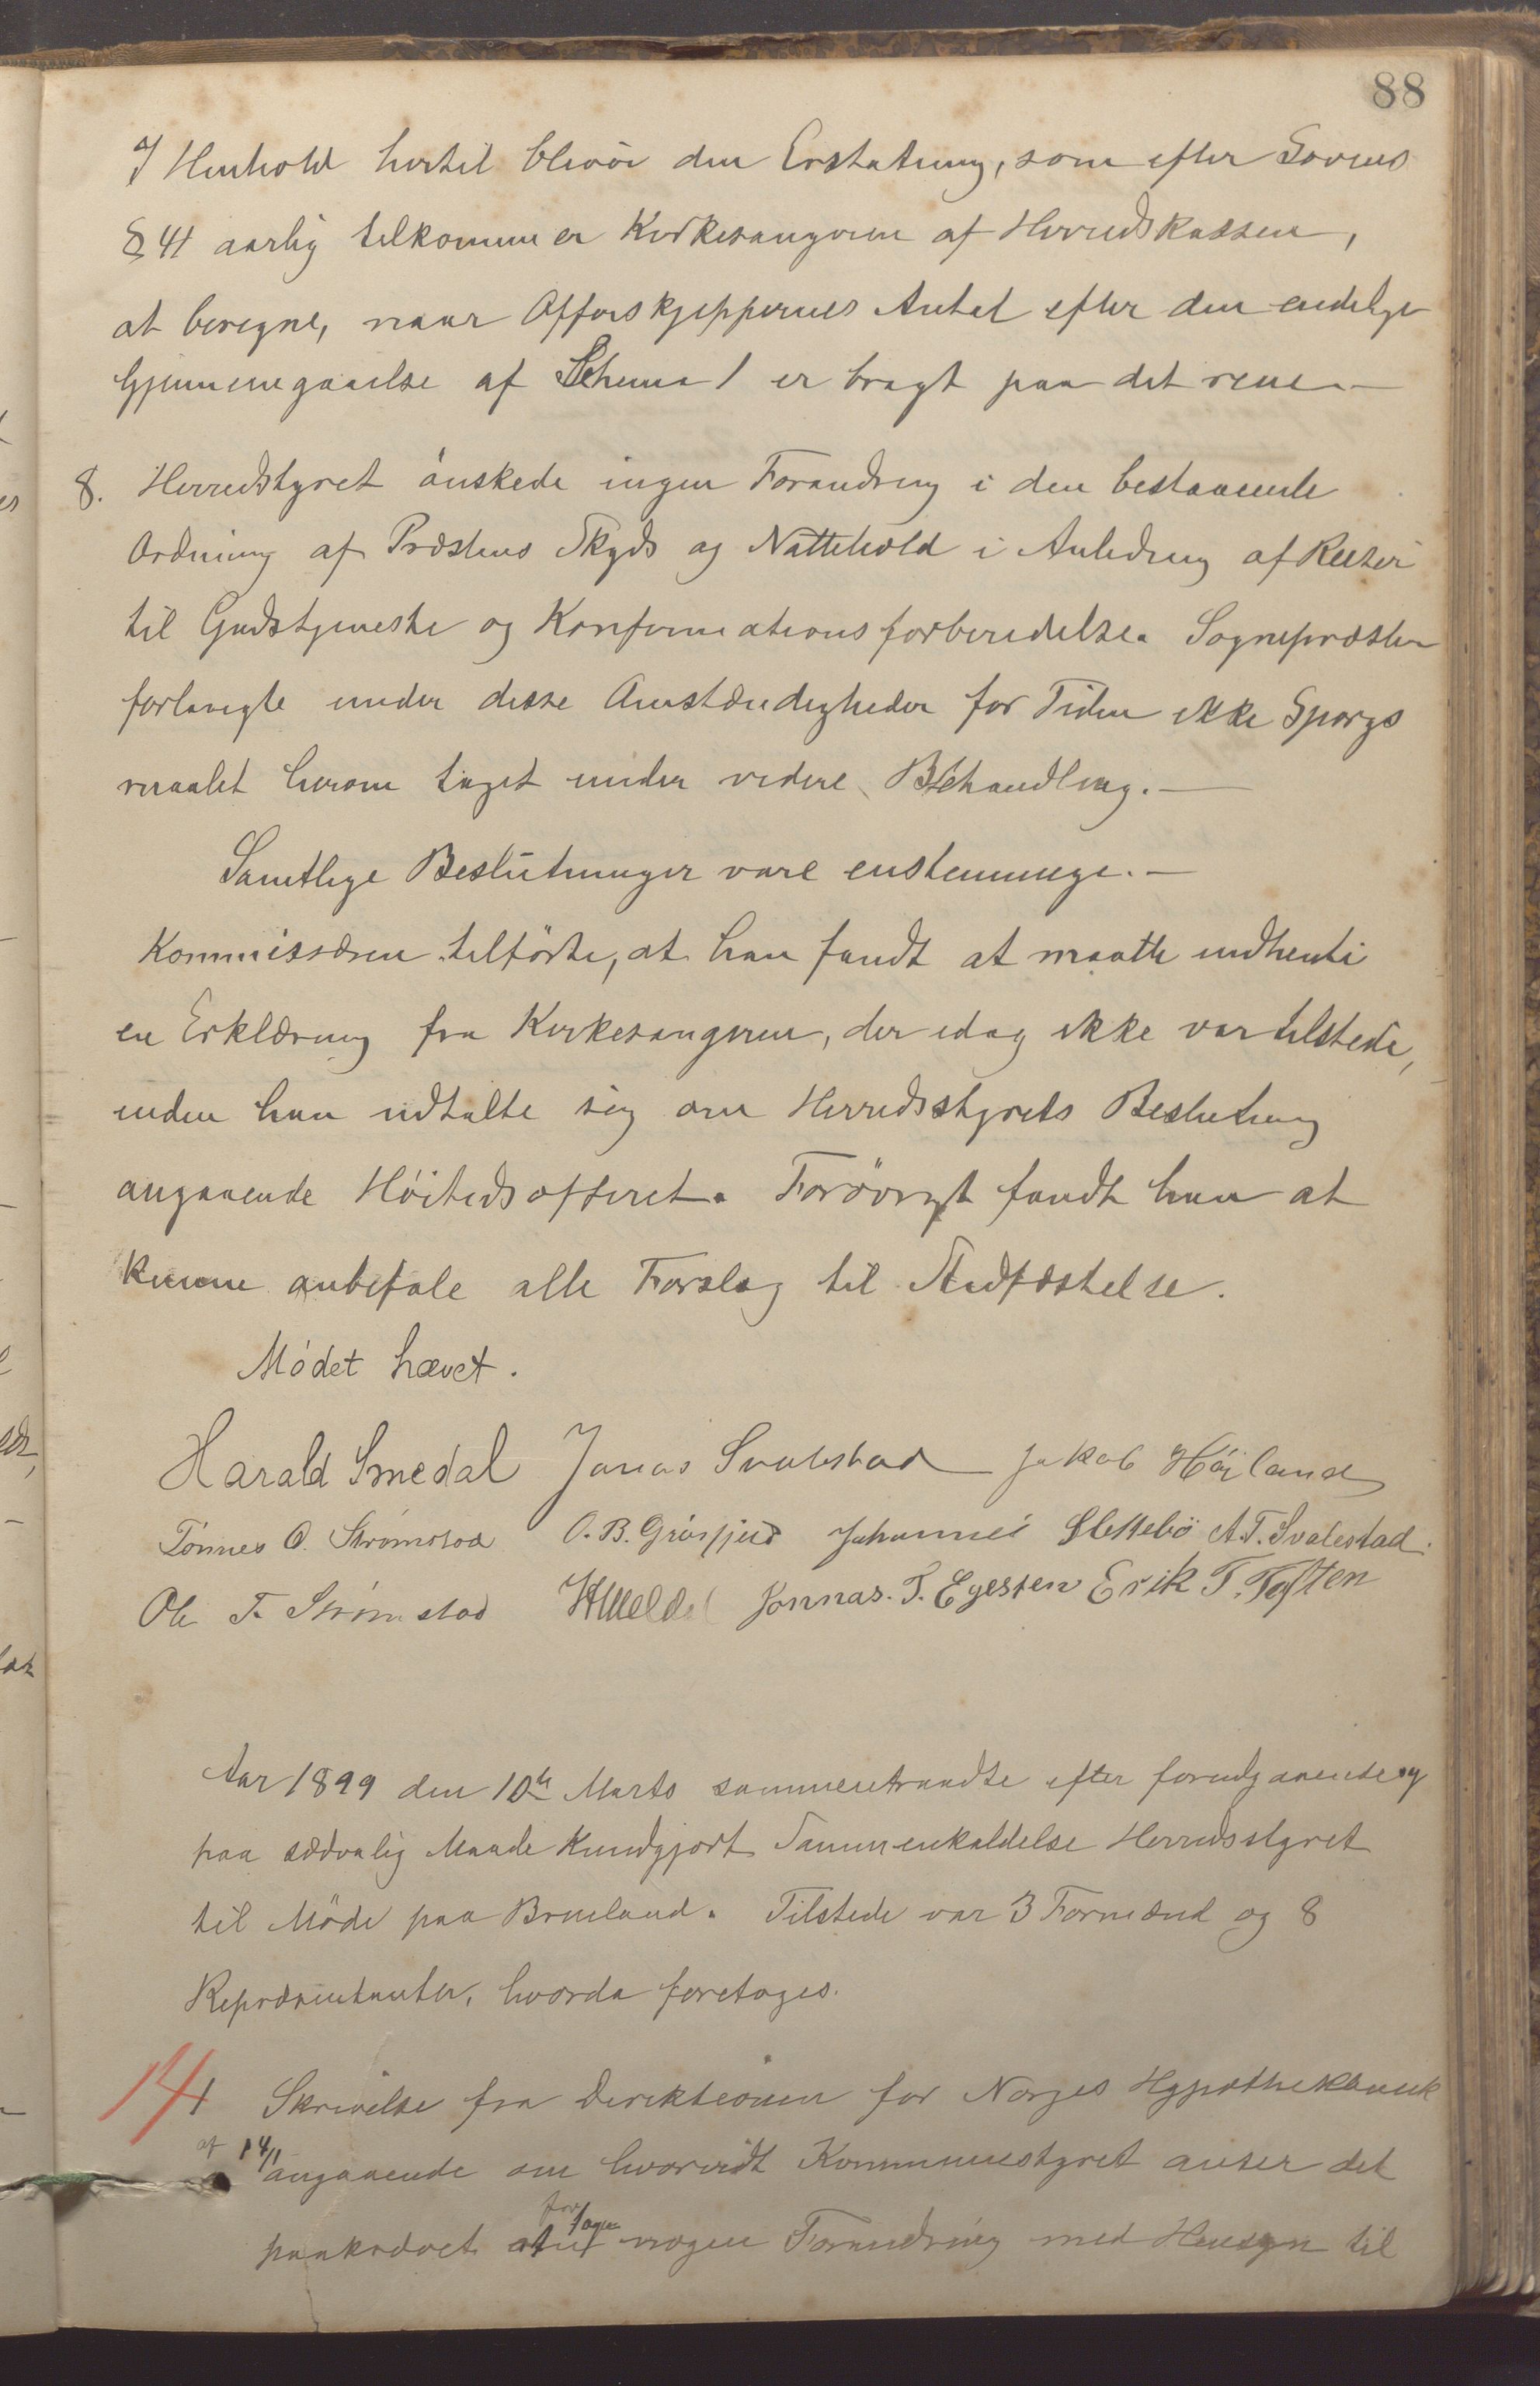 88
I Henhold hertil blever den Erstatning, som efter Lovens
§ 41 aarlig tilkommer Kirkesangeren af Herredskassen,
at beregne, naar Offerskjeppernes Antal efter den endelige
Gjennemgaaelse af Schema 1 er bragt paa det rene. —
8. Herredstyret önskede ingen Forandring i den bestaaende
Ordning af Præstens Skyds og Nattehold i Anledning af Reiser
til Gudstjeneste og Konfirmationsforberedelse. Sognepræsten
forlangte under disse Omstændigheder for Tiden ikke Spørgs
maalet herom taget under videre Behandling. —
Samtlige Beslutninger vare enstemmige. —
Kommissæren tilförte, at han fandt at maatte indhente
en Erklæring fra Kirkesangeren, der idag ikke var tilstede,
inden han udtalte sig om Herredsstyrets Beslutning
angaaende Höitidsofferet. Forövrigt fandt han at
kunne anbefale alle Forslag til Stadfæstelse.
Mödet hævet.
Harald Smedal Jonas Svalestad Jakob Höiland
Tönnes O. Strömstad O. B. Gråsfjeld Johannes Slettebö A. T. Svalestad.
Ole T. Strömstad Jonnas. T. Egesten Erik T. Toften
Aar 1899 den 10de Marts sammentraadte efter forudgaaende og
paa sædvalig Maade kundgjort Sammenkaldelse Herredsstyret
til Möde paa Brueland. Tilstede var 3 Formænd og 8
Repræsentanter, hvorda foretoges.
14 1 Skrivelse fra Direktionen for Norges Hypothekbank
af 14/1 angaaende om hvorvidt Kommunestyret anser det
paakrævet at nogen Forandring med Hensyn til